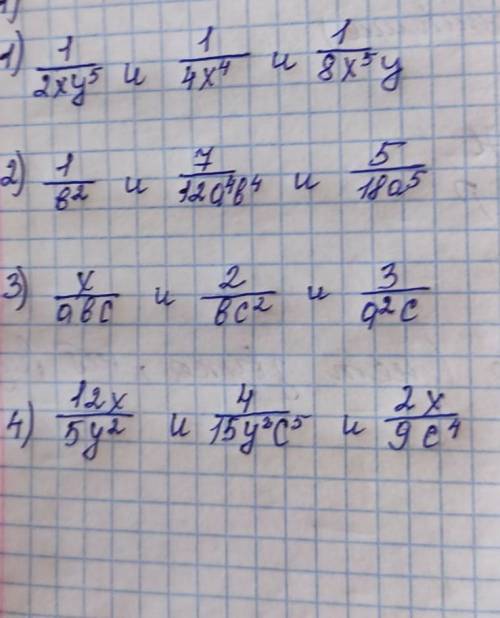 1) 1/(2xy⁵) и 1/(4x⁴) и 1/(8x⁵y)
2) 1/в² и 7/(12a⁴в⁴) и 5/(18a⁵)
3) x/(aвc) и 2/(вc²) и 3/(a²c)
4) 12x/(5y²) и 4/(15y³c⁵) и 2x/(9c⁴)